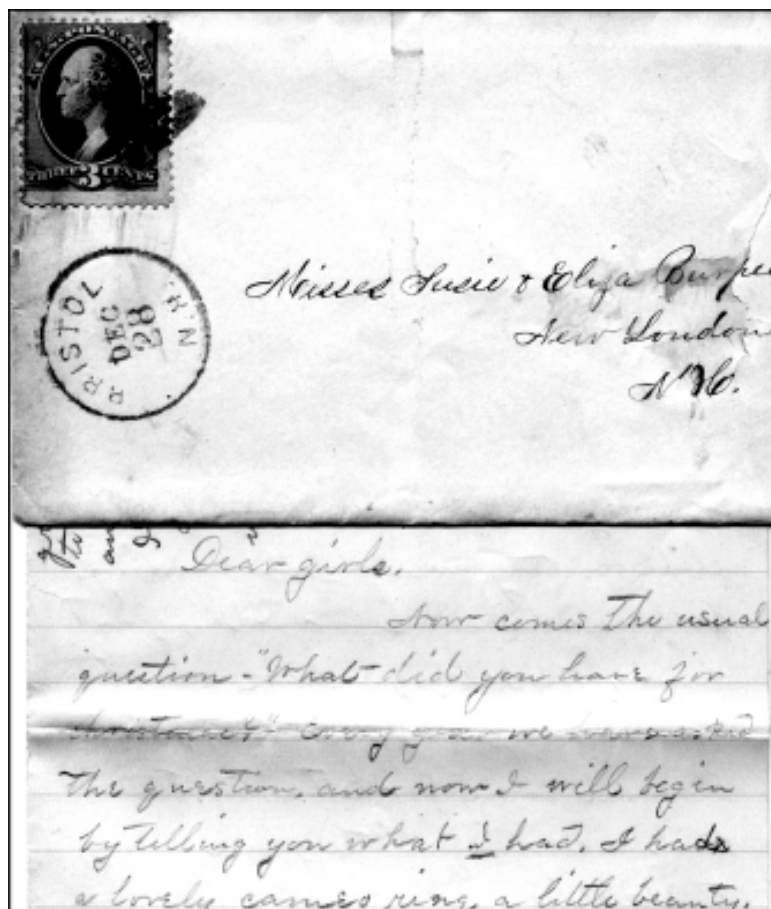 U.S. POSTAGE
THREE 3 CENTS
BRISTOL N.H.
DEC
28
Misses Susie & Eliza
New London
N.H.
Dear girls.
Now comes the usual
question - "What did you have for
Christmas?" Every year we have asked
the question, and now I will begin
by telling you what I had. I had
a lovely cameo ring, a little beauty.